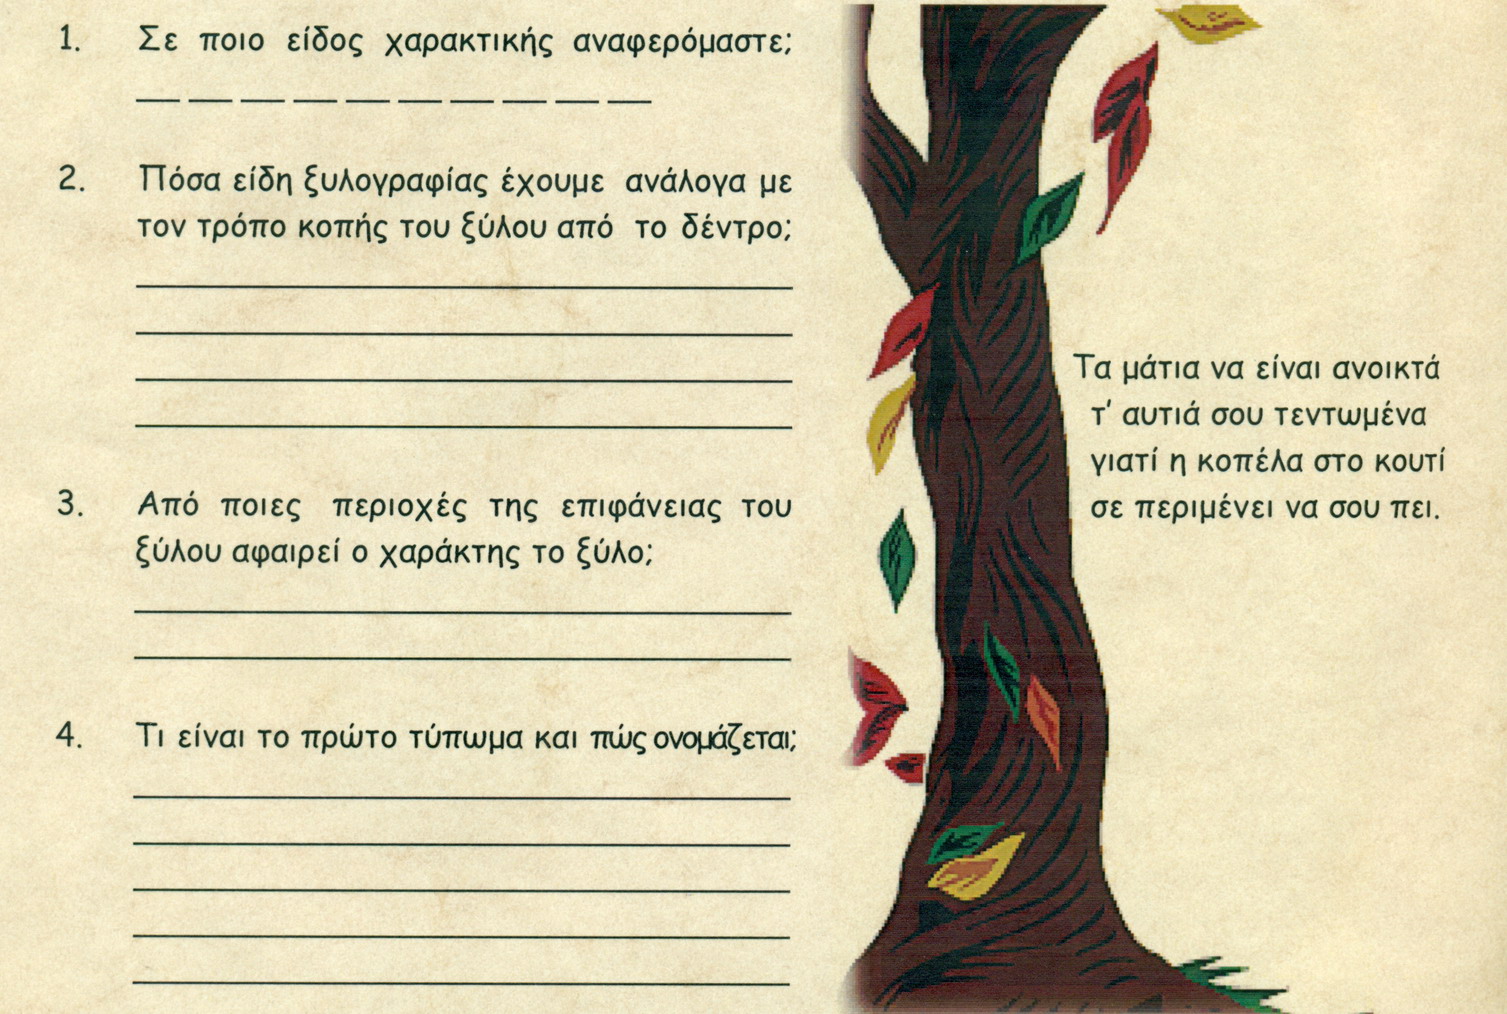 1. Σε ποιο είδος χαρακτικής αναφερόμαστε;
2. Πόσα είδη ξυλογραφίας έχουμε ανάλογα με
τον τρόπο κοπής του ξύλου από το δέντρο;
3. Από ποιες περιοχές της επιφάνειας του
ξύλου αφαιρεί ο χαράκτης το ξύλο;
4. Τι είναι το πρώτο τύπωμα και πώς ονομάζεται;
Τα μάτια να είναι ανοικτά
τ' αυτιά σου τεντωμένα
γιατί η κοπέλα στο κουτί
σε περιμένει να σου πει.